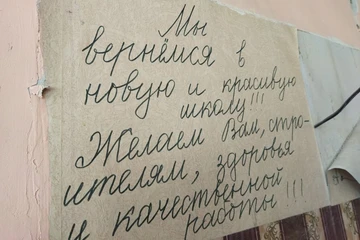 Мы
вернёмся в
новую и красивую
школу!!!
Желаем Вам, стро-
ителям, здоровья
и качественной
работы!!!